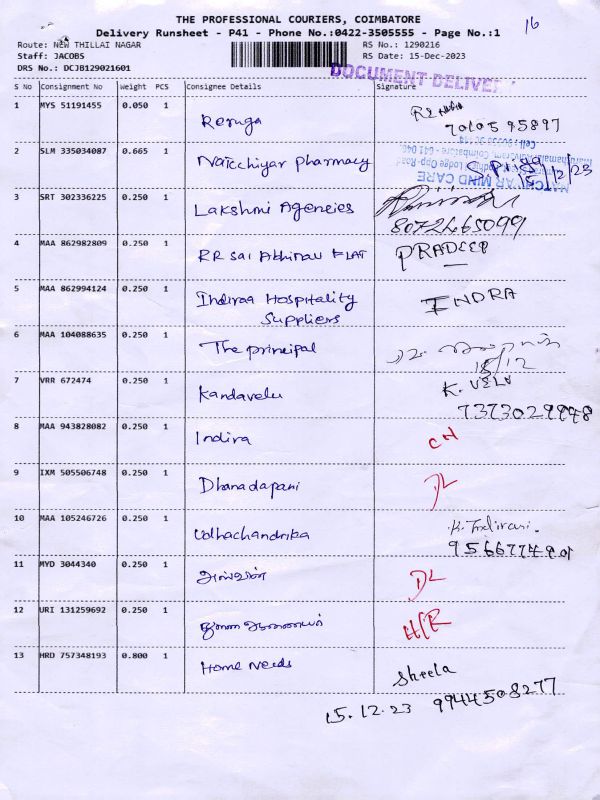 THE PROFESSIONAL COURIERS, COIMBATORE
16
Delivery Runsheet - P41 - Phone No.:0422-3505555 - Page No.:1
Route: NEW THILLAI NAGAR
RS No.: 1290216
Staff: JACOBS
RS Date: 15-Dec-2023
DRS No.: DCJB129021601
DOCUMENT DELIVER
S No Consignment No Weight PCS Consignee Details Signature
1 MYS 51191455 0.050 1 Renuga
7010595897
2 SLM 335034087 0.665 1 Natcchiyar Pharmacy
15/12/23
MATCHIYAR MIND CARE
3 SRT 302336225 0.250 1 Lakshmi Agencies
8072465099
4 MAA 862982809 0.250 1 RR Sai Abhinav FLAT PRADEEP
5 MAA 862994124 0.250 1 Indiraa Hospitality INDRA
Suppliers
6 MAA 104088635 0.250 1 The principal
15/12
7 VRR 672474 0.250 1 Kandavelu K. VELU
7373029998
8 MAA 943828082 0.250 1 Indira CN
9 IXM 505506748 0.250 1 Dhanadapani DL
10 MAA 105246726 0.250 1 Udhachandrika K. Indirani.
11 MYD 3044340 0.250 1 DL
12 URI 131259692 0.250 1 H/R
13 HRD 757348193 0.800 1 Home Needs Sheela
15.12.23 9944508277